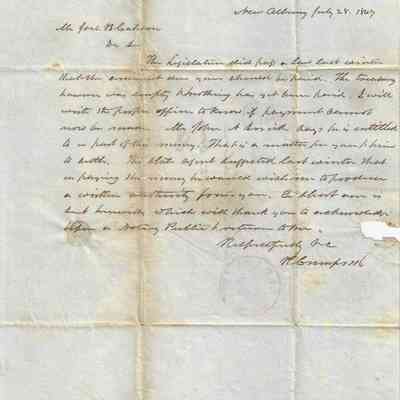 New Albany July 28. 1847
Mr Joel B
Dr Sir
The Legislature did pass a law last winter
that the amount due your should be paid. The treasury
however was empty & nothing has yet been paid. I will
write the proper officer to know if payment cannot
now be made. Mr John A says he is entitled
to a part of this money. That is a matter for you & him
to settle. The State agent suggested last winter that
in paying the money he would wish me to produce
a written authority from you. A blank one is
sent herewith which will thank you to acknowledge
before a Notary Public & return to me.
Respectfully &c
R Crawford